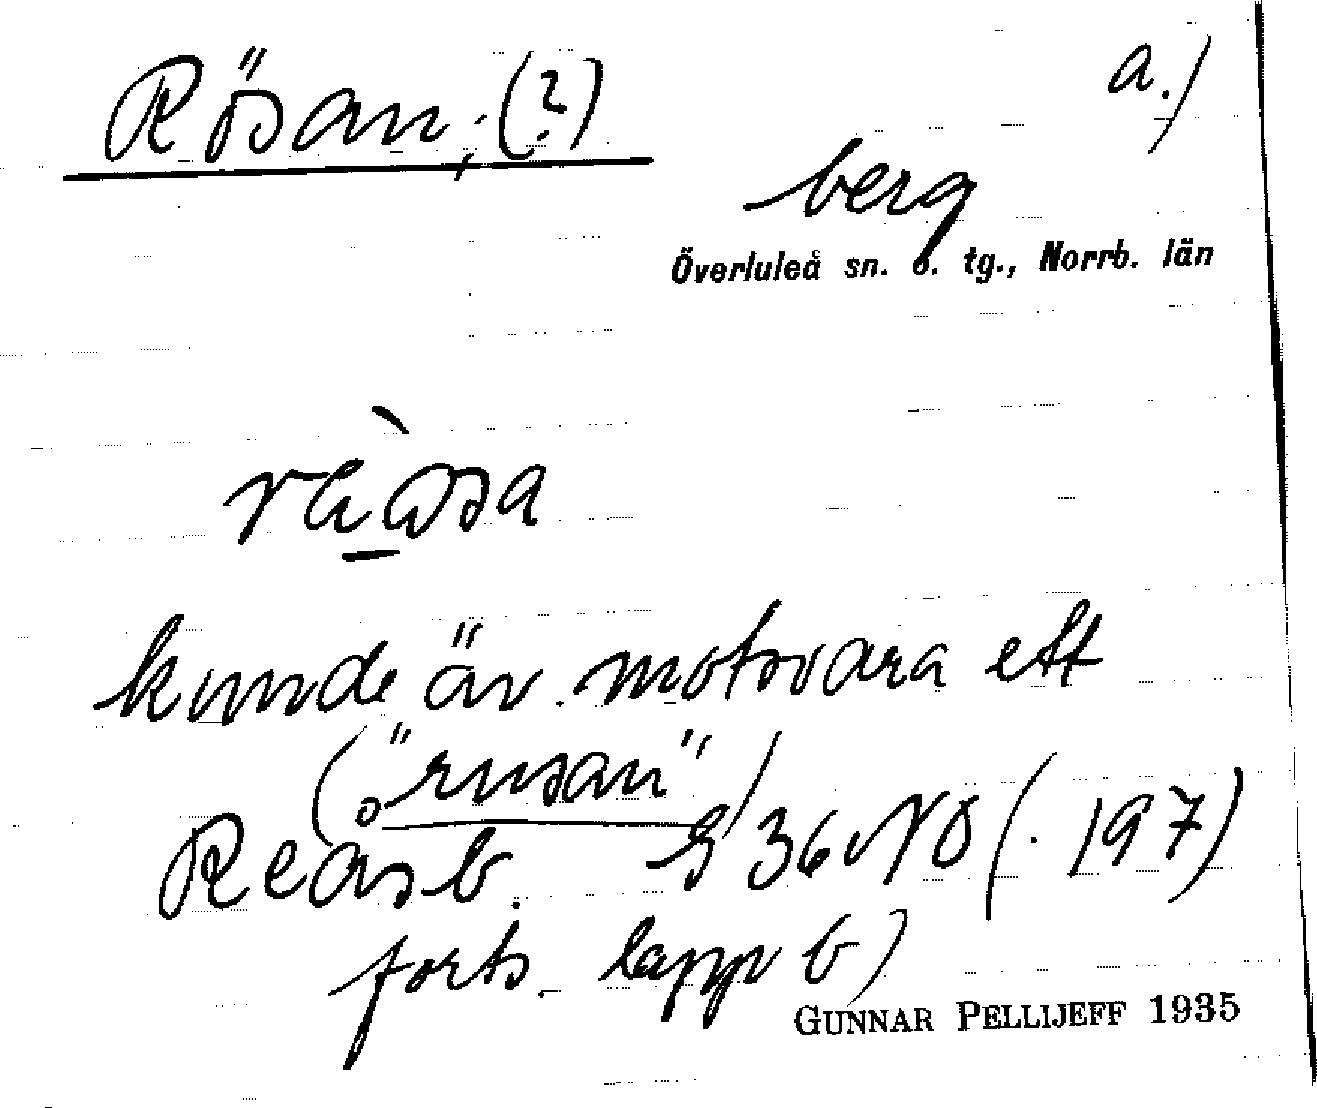 Rösan; (?)
a.)
berg
Överluleå sn. o. tg., Norrb. län
kunde äv. motsvara ett
("rusan")
Reåsb. G 36 NO (. 197)
forts. lapp b)
GUNNAR PELLIJEFF 1935